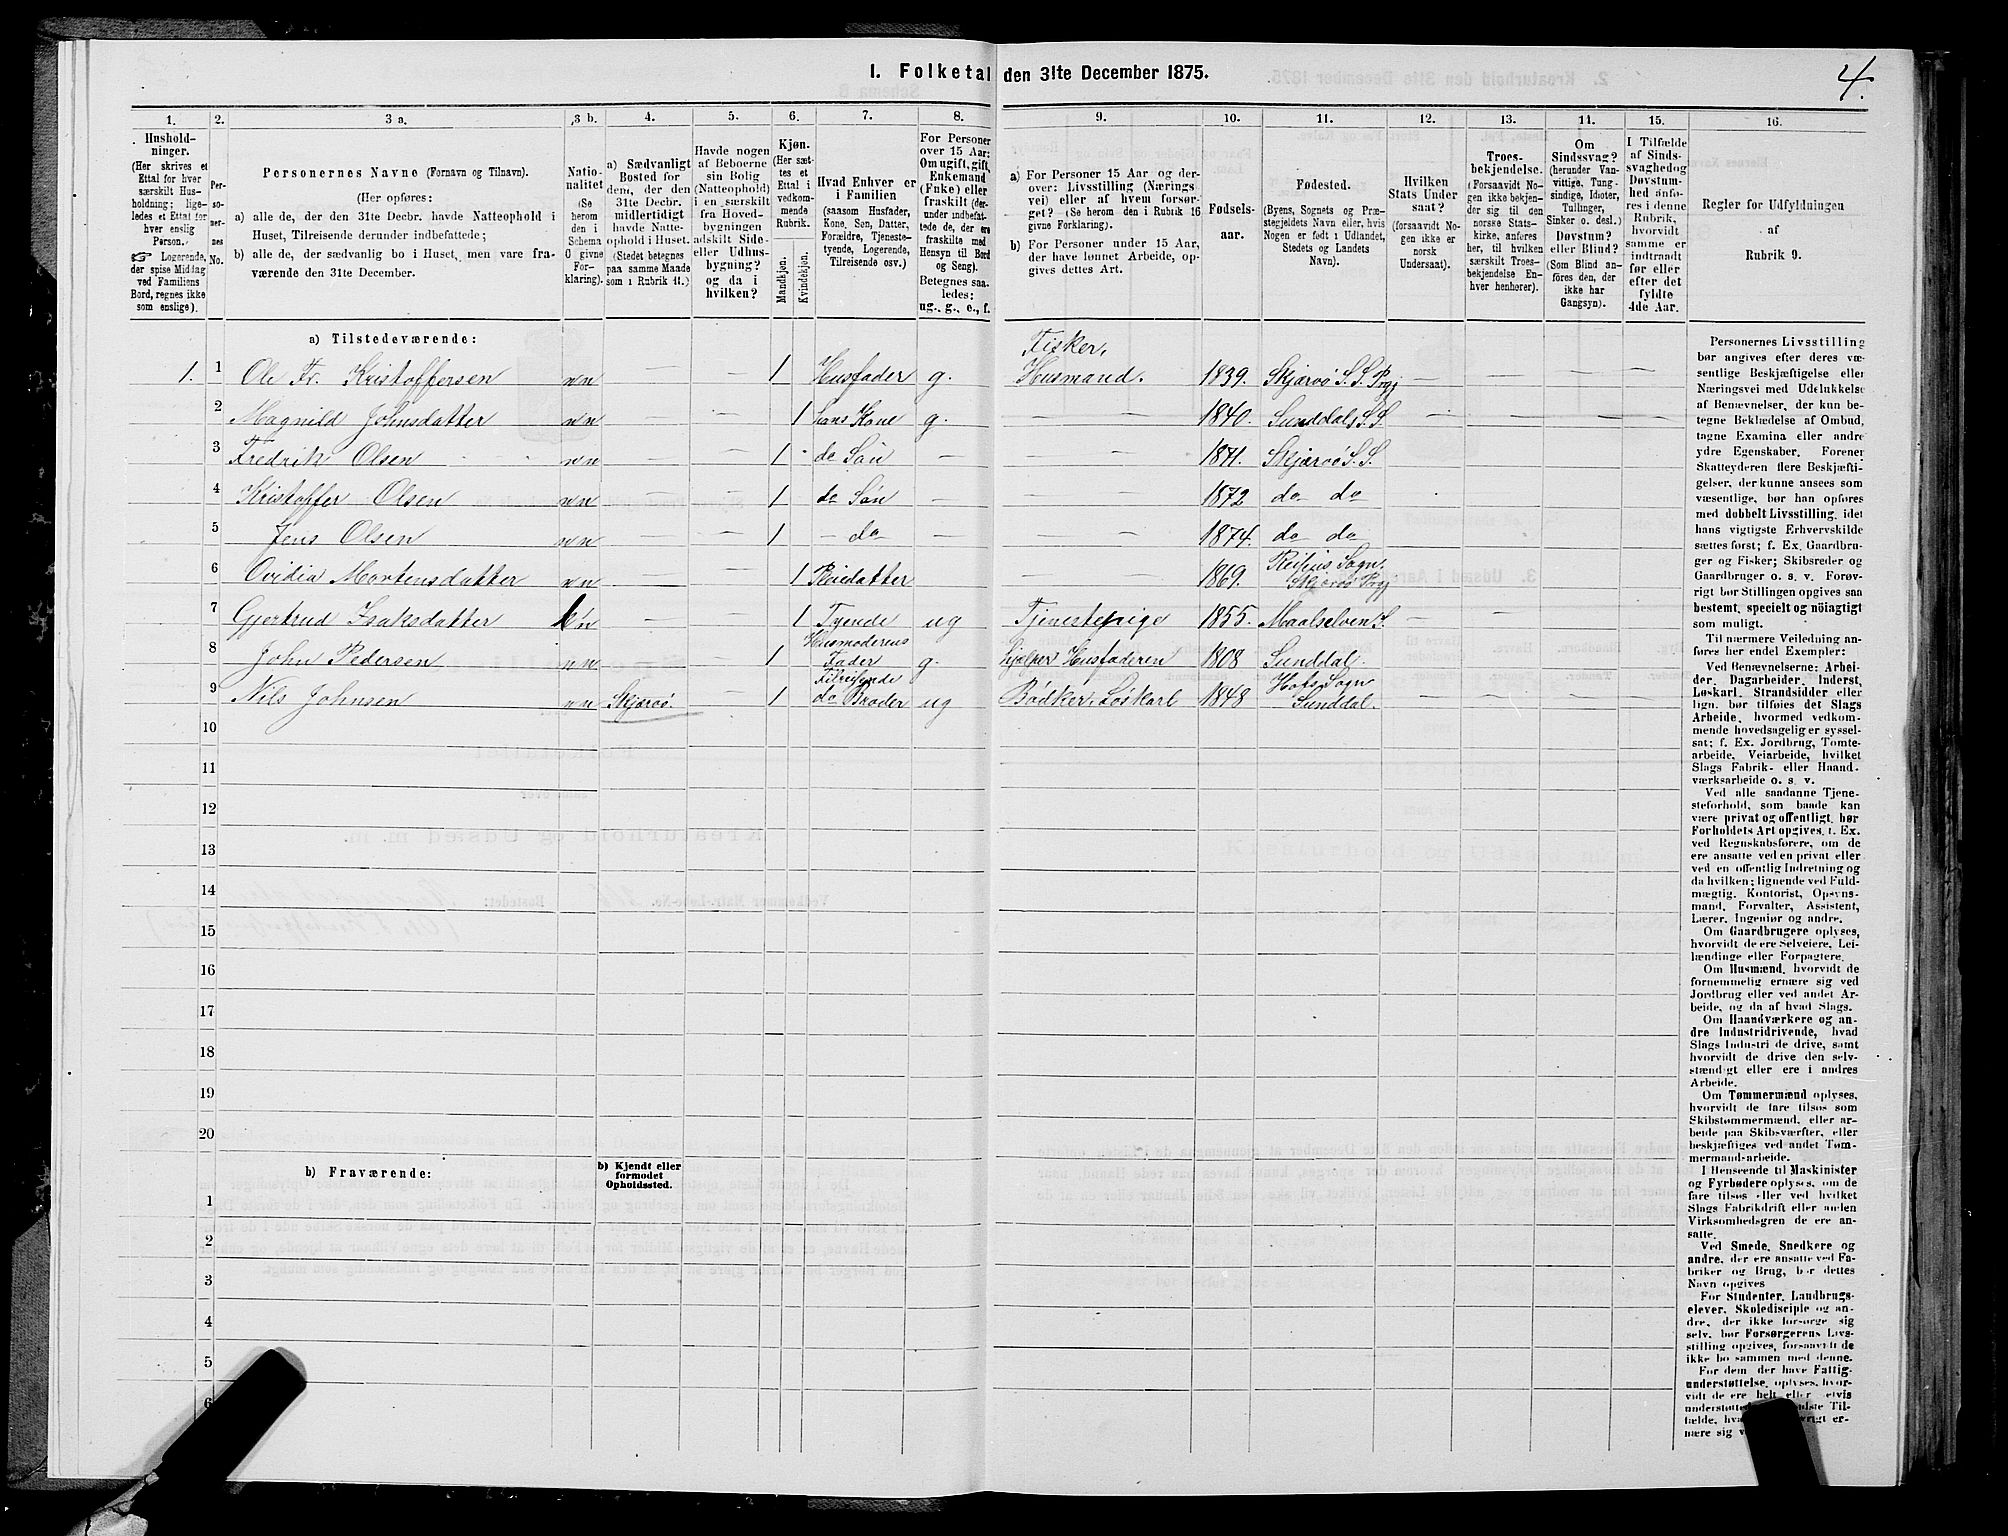 I. Folketal den 31te December 1875.
4.
1. 2. 3 a. 3 b. 4. 5. 6. 7. 8. 9. 10. 11. 12. 13. 11. 15. 16.
Husholdninger.
(Her skrives et
Ettal for hver
særskilt Husholdning; ligeledes
et Ettal for
hver enslig
Person.
Logerende,
der spise Middag
ved Familiens
Bord, regnes ikke
som enslige).
Personernes No.
Personernes Navne (Fornavn og Tilnavn).
(Her opføres:
a) alle de, der den 31te Decbr. havde Natteophold i
Huset, Tilreisende derunder indbefattede;
b) alle de, der sædvanlig bo i Huset, men vare fraværende
den 31te December.
Nationalitet
(Se
herom
den i
Schema
O givne
Forklaring).
a) Sædvanligt
Bosted for
dem, der den
31te Decbr.
midlertidigt
havde Natteophold
i Huset.
(Stedet betegnes
paa samme Maade
som i Rubrik 11.)
Havde nogen
af Beboerne
sin Bolig
(Natteophold)
i en særskilt
fra Hovedbygningen
adskilt Side-
eller Udhusbygning?
og da i
hvilken?
Kjøn.
(Her sættes
et
Ettal i
vedkommende
Rubrik.
Mandkjøn.
Kvindekjøn.
Hvad Enhver er
i Familien
(saasom Husfader,
Kone, Søn, Datter,
Forældre, Tjenestetyende,
Logerende,
Tilreisende osv.)
For Personer
over 15 Aar:
Om ugift, gift,
Enkemand
(Enke) eller
fraskilt (derunder
indbefattede
de, der ere
fraskilte med
Hensyn til Bord
og Seng).
Betegnes saaledes:
ug., g., e., f.
a) For Personer 15 Aar og derover:
Livsstilling (Næringsvei)
eller af hvem forsørget?
(Se herom den i Rubrik 16
givne Forklaring).
b) For Personer under 15 Aar,
der have lønnet Arbeide, opgives
dettes Art.
Fødselsaar.
Fødested.
(Byens, Sognets og Præstegjeldets
Navn eller, hvis
Nogen er født i Udlandet,
Stedets og Landets
Navn).
Hvilken
Stats Undersaat?
(forsaavidt Nogen
ikke er
norsk
Undersaat).
Troesbekjendelse.
(Forsaavidt Nogen
ikke bekjender
sig til den
norske Statskirke,
anføres
her, til hvilken
særskilt Troesbekjendelse
Enhver
henhører).
Om
Sindssvag?
(herunder Vanvittige,
Tungsindige,
Idioter,
Tullinger,
Sinker o. desl.)
Døvstum?
eller Blind?
(Som Blind anføres
den, der
ikke har
Gangsyn).
I Tilfælde
af Sindssvaghed
og
Døvstumhed
anføres
i denne
Rubrik,
hvorvidt
samme er
indtraadt
før eller
efter det
fyldte
4de Aar.
Regler for Udfyldningen
af
Rubrik 9.
a) Tilstedeværende:
1. 1 Ole Fr. Kristoffersen nn — 1 Husfader g. Fisker, Husmand. 1839. Skjærvö S. S. Prgj — —
2 Magnild Johnsdatter nn — — 1 hans Kone g. — — 1840. Sunddals S. — —
3 Fredrik Olsen nn — — 1 do Sön — — — 1871. Skjærvö S. S.
4 Kristoffer Olsen nn — — 1 do Sön — — — 1872 do do
5 Jens Olsen nn — — 1 — do — — — 1874. do do
6 Ovidia Mortensdatter nn — — 1 Pleiedatter — — 1869. Sogn. Skjærvö Prgj
7 Gjertrud Isaksdatter — — 1 Tyende ug Tjenestepige 1855. Maalselven S. — —
8 John Pedersen nn — — 1 Husmoderens Fader g. hjælper Husfaderen 1808 Sunddal —
9 Nils Johnsen nn Skjærvö. — 1 Tilreisende do Broder ug Bödker, Löskarl 1848 Sogn Sunddal. —
10
11
12
13
14
15
16
17
18
19
20
b) Fraværende:
b) Kjendt eller
formodet
Opholdssted.
1
2
3
4
5
6
Personernes Livsstilling
bør angives efter deres væsentlige
Beskjæftigelse eller
Næringsvei med Udelukkelse
af Benævnelser, der kun betegne
Beklædelse af Ombud,
tagne Examina eller andre
ydre Egenskaber. Forener
Skatteyderen flere Beskjæftigelser,
der kunne ansees som
væsentlige, bør han opføres
med dobbelt Livsstilling, idet
hans vigtigste Erhvervskilde
sættes først; f. Ex. Gaardbruger
og Fisker; Skibsreder og
Gaardbruger o. s. v. Forøvrigt
bør Stillingen opgives saa
bestemt, specielt og nöiagtigt
som muligt.
Til nærmere Veiledning anføres
her endel Exempler:
Ved Benævnelserne: Arbeider,
Dagarbeider, Inderst,
Løskarl, Strandsidder eller
lign. bør tilføies det Slags
Arbeide, hvormed vedkommende
hovedsagelig er sysselsat;
f. Ex. Jordbrug, Tomtearbeide,
Veiarbeide, hvilket
Slags Fabrik- eller Haandværksarbeide
o. s. v.
Ved alle saadanne Tjenesteforhold,
som baade kan
være privat og offentligt, bør
Forholdets Art opgives, t. Ex.
ved Regnskabsførere, om de
ere ansatte ved en privat eller
ved en offentlig Indretning og
da hvilken; lignende ved Fuldmægtig,
Kontorist, Opsynsmand,
Forvalter, Assistent,
Lærer, Ingeniør og andre.
Om Gaardbrugere oplyses,
hvorvidt de ere Selveiere, Leilændinge
eller Forpagtere.
Om Husmænd, hvorvidt de
fornemmelig ernære sig ved
Jordbrug eller ved andet Arbeide,
og da af hvad Slags.
Om Haandværkere og andre
Industridrivende, hvad
Slags Industri de drive, samt
hvorvidt de drive den selvstændigt
eller ere i andres
Arbeide.
Om Tømmermænd oplyses,
hvorvidt de fare tilsøs som
Skibstømmermænd, eller arbeide
paa Skibsværfter, eller
beskjæftiges ved andet Tømmermand-arbeide.
I Henseende til Maskinister
og Fyrbødere oplyses, om de
fare tilsøs eller ved hvilket
Slags Fabrikdrift eller anden
Virksomhedsgren de ere ansatte.
Ved Smede, Snedkere og
andre, der ere ansatte ved Fabriker
og Brug, bør dettes
Navn opgives
For Studenter, Landbrugselever,
Skoledisciple og andre,
der ikke forsørge sig
selv, bør Forsørgerens Livsstilling
opgives, forsaavidt de
ikke bo sammen med denne.
For dem, der have Fattigunderstøttelse,
oplyses, hvorvidt
de ere helt eller